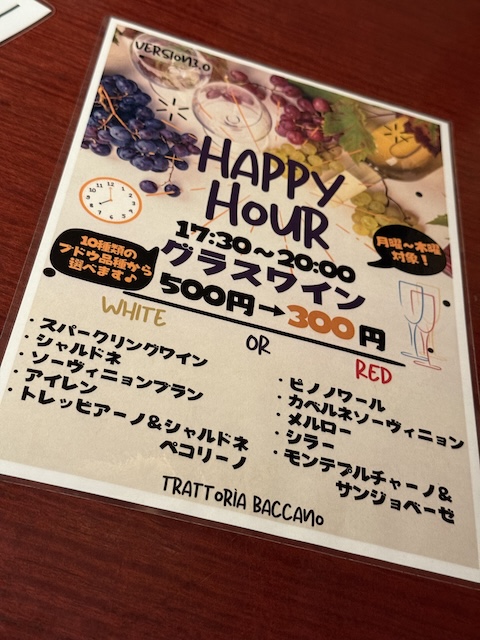 VERSION3.0
HAPPY
HOUR
17:30～20:00
月曜～木曜
対象！
10種類の
ブドウ品種から
選べます♪
グラスワイン
500円→300円
WHITE
OR
RED
・スパークリングワイン
・シャルドネ
・ソーヴィニョンブラン
・アイレン
・トレッビアーノ&シャルドネ
ペコリーノ
・ピノノワール
・カベルネソーヴィニョン
・メルロー
・シラー
・モンテプルチャーノ&
サンジョベーゼ
TRATTORIA BACCANO